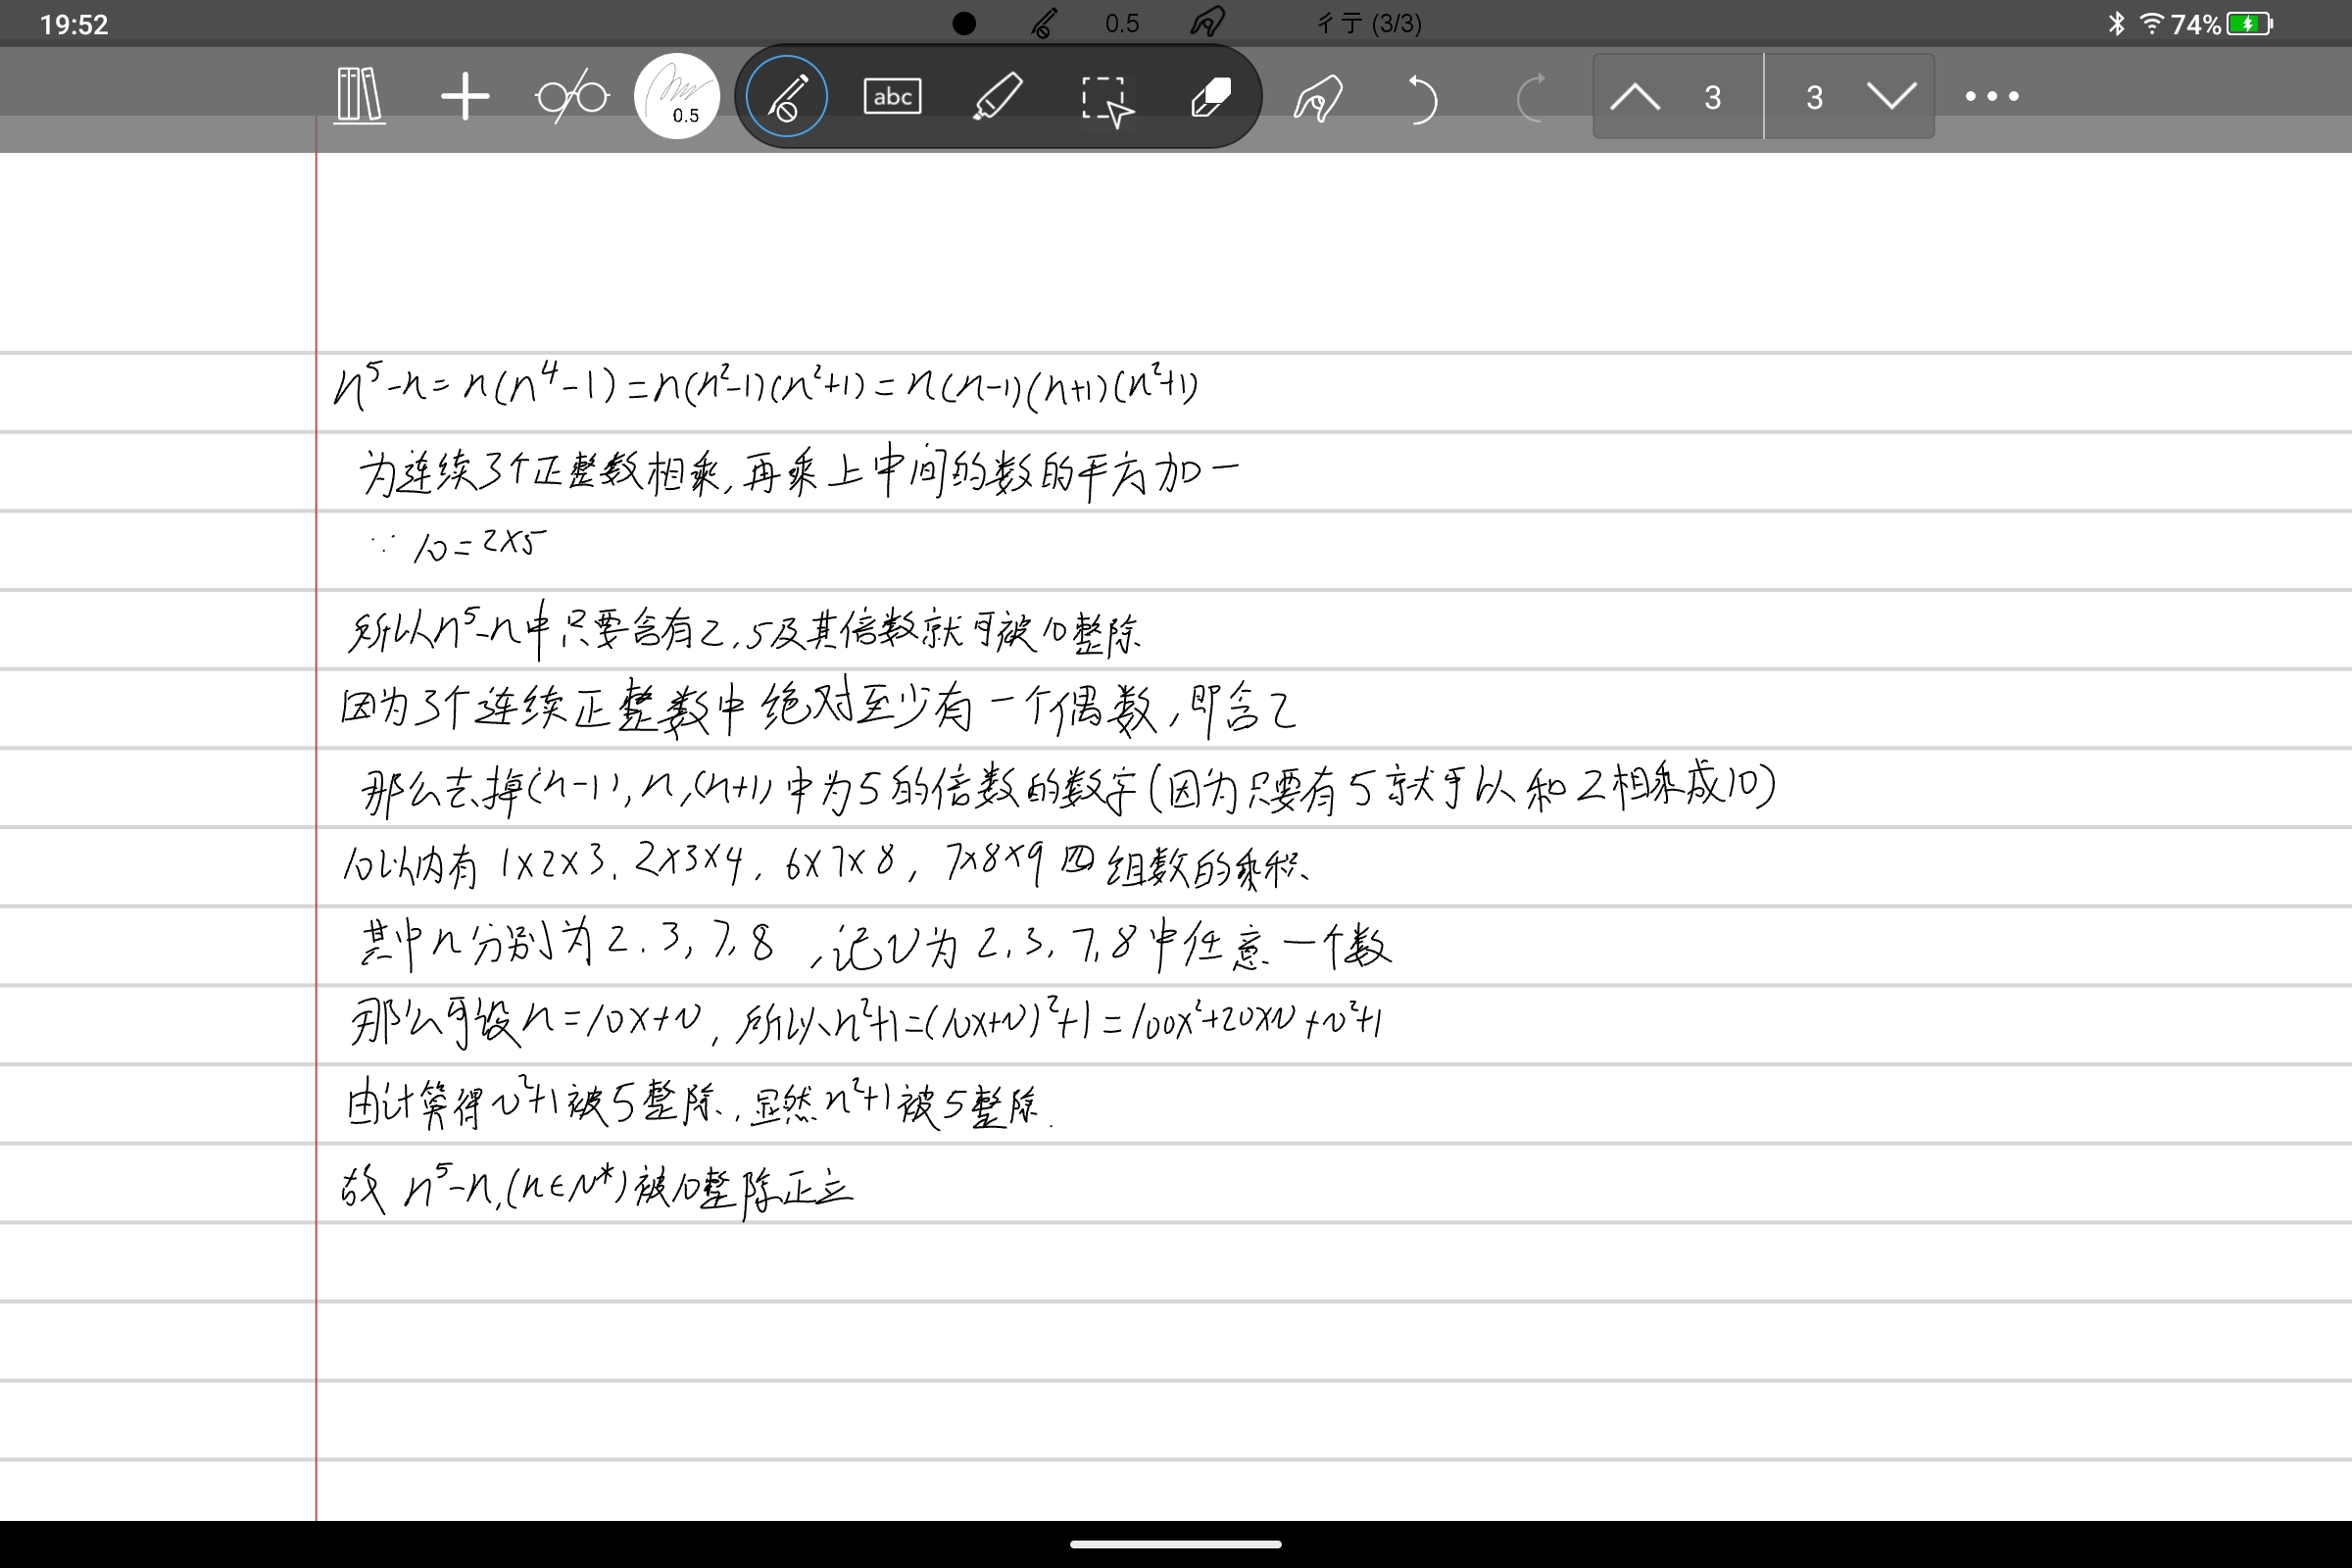 19:52
0.5
彳亍 (3/3)
74%
0.5
abc
3
3
n⁵-n=n(n⁴-1)=n(n²-1)(n²+1)=n(n-1)(n+1)(n²+1)
为连续3个正整数相乘,再乘上中间的数的平方加一
∵ 10=2×5
所以n⁵-n中只要含有2,5及其倍数就可被10整除
因为3个连续正整数中绝对至少有一个偶数,即含2
那么去掉(n-1),n,(n+1)中为5的倍数的数字(因为只要有5就可以和2相乘成10)
10以内有1×2×3,2×3×4,6×7×8,7×8×9四组数的乘积
其中n分别为2,3,7,8,记v为2,3,7,8中任意一个数
那么可设n=10x+v,所以n²+1=(10x+v)²+1=100x²+20xv+v²+1
由计算得v²+1被5整除,显然n²+1被5整除.
故 n⁵-n,(n∈N*)被10整除正立